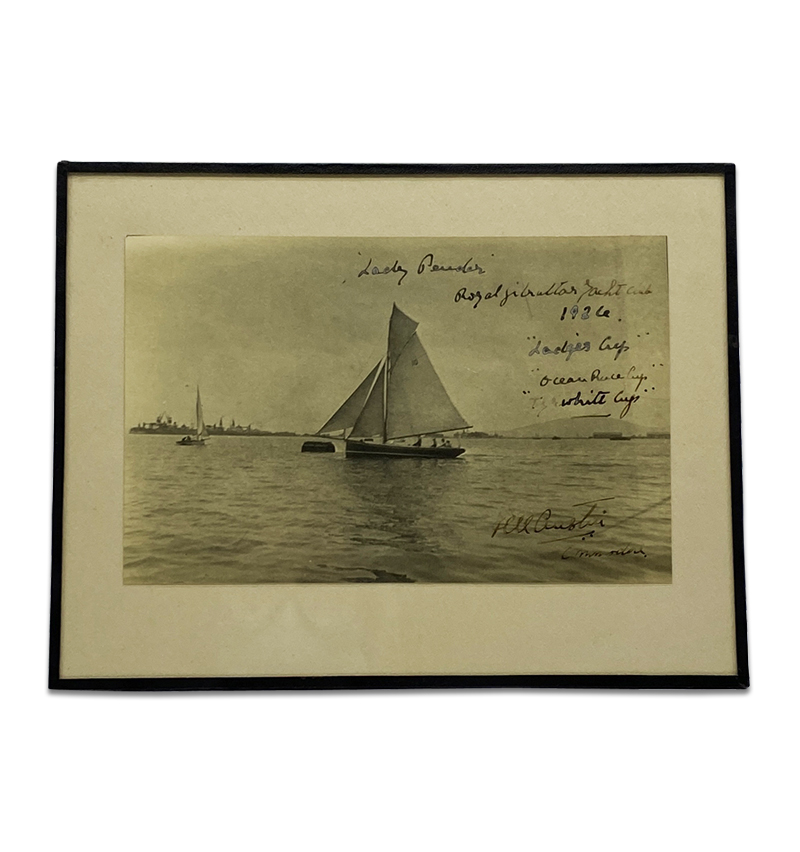 "Lady Pender"
Royal Gibraltar Yacht Club
1936.
"Ladies Cup"
"Ocean Race Cup"
"Tyrwhitt Cup"
Austin
Commodore